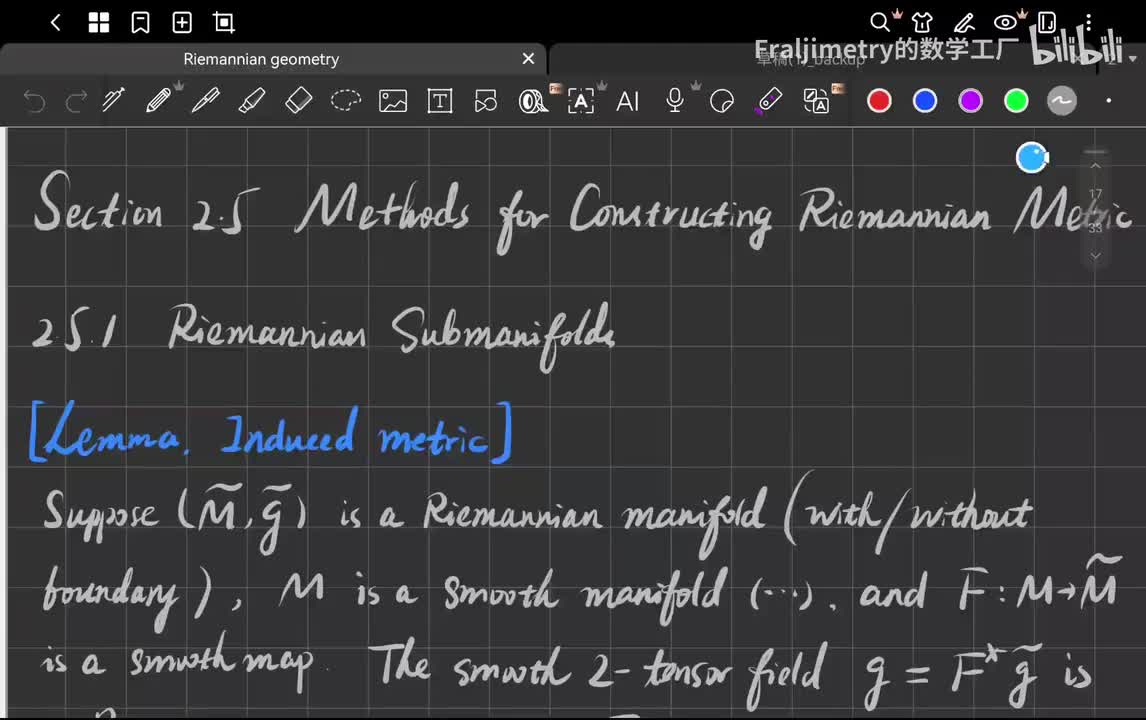 Fraljimetry的数学工厂 bilibili
Riemannian geometry
草稿(1)_backup
17
33
Section 2.5 Methods for Constructing Riemannian Metric
2.5.1 Riemannian Submanifolds
[Lemma. Induced metric]
Suppose (M̃, g̃) is a Riemannian manifold (with/without
boundary), M is a smooth manifold (...), and F: M→M̃
is a smooth map. The smooth 2-tensor field g = F*g̃ is